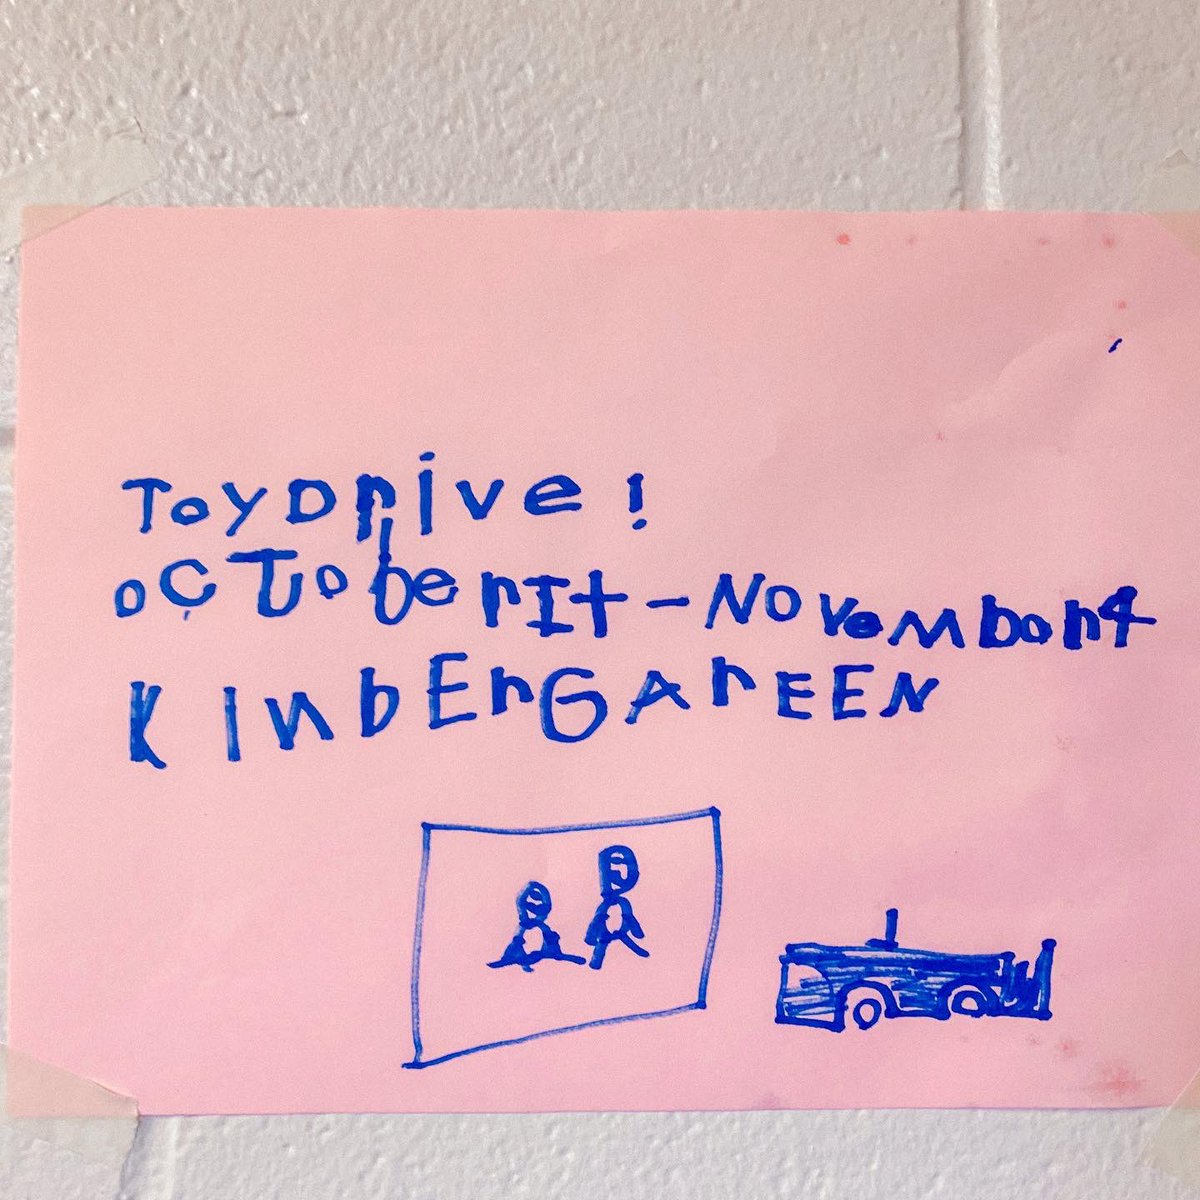 ToyDrive!
OCTober 17 - November 4
KINDERGAREEN